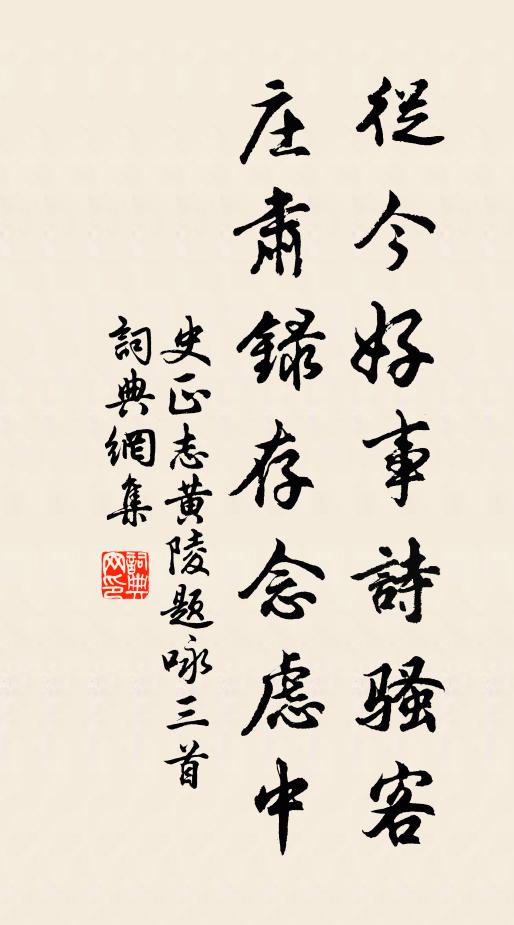 從今好事詩騷客
庄肅録存念慮中
史正志黄陵題咏三首
詞典網集
詞典
网印